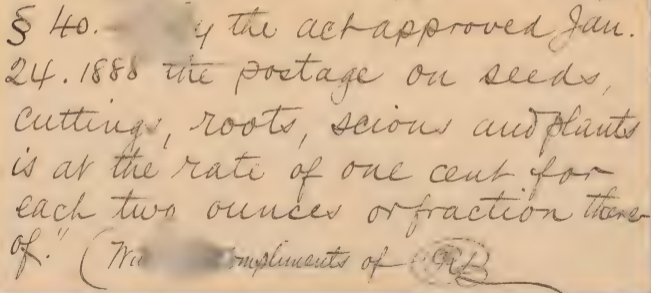 § 40. the act approved Jan.
24. 1888 the postage on seeds,
cuttings, roots, scions and plants
is at the rate of one cent for
each two ounces or fraction there
of." ( of